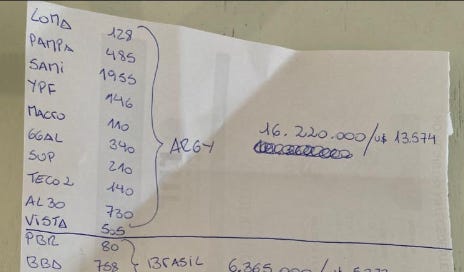 LOMA 128
PAMPA 485
SAMI 1955
YPF 146
MACRO 110
GGAL 340
SUP 210
TECO2 140
AL30 730
VISTA 505
ARGY 16.220.000/U$ 13.574
PBR 80
BBD 758
BRASIL 6.365.000